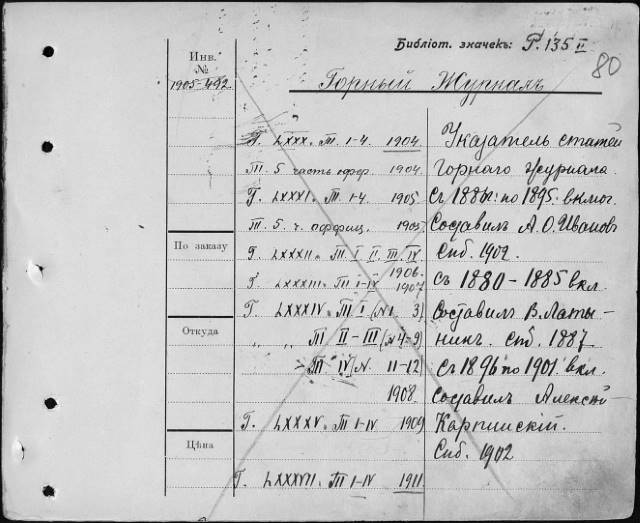 Библіот. значекъ: Р. 135 II
80
Инв.
№
1905-492
Горный Журналъ
Г. LXXX. Т. 1-4. 1904
Т. 5 часть офф. 1904
Г. LXXXI. Т. 1-4. 1905
Т. 5. ч. оффиц. 1905
По заказу
Г. LXXXII. Т. I. II. III. IV
1906.
Г. LXXXIII. Т. I-IV 1907
Г. LXXXIV. Т. I (№1 3)
Откуда
„ „ Т. II-III (№4-9)
Т. IV (№ 11-12)
1908
Г. LXXXV. Т. I-IV 1909
Цѣна
Г. LXXXVII. Т. I-IV 1911
Указатель статей
Горнаго журнала.
Съ 1886г. по 1895. включ.
Составилъ А. О. Ивановъ
Спб. 1902.
съ 1880-1885 вкл.
Составилъ В. Латы-
нинъ. Спб. 1887
Съ 1896 по 1901 вкл.
Составилъ Алексѣй
Карпинскій.
Спб. 1902